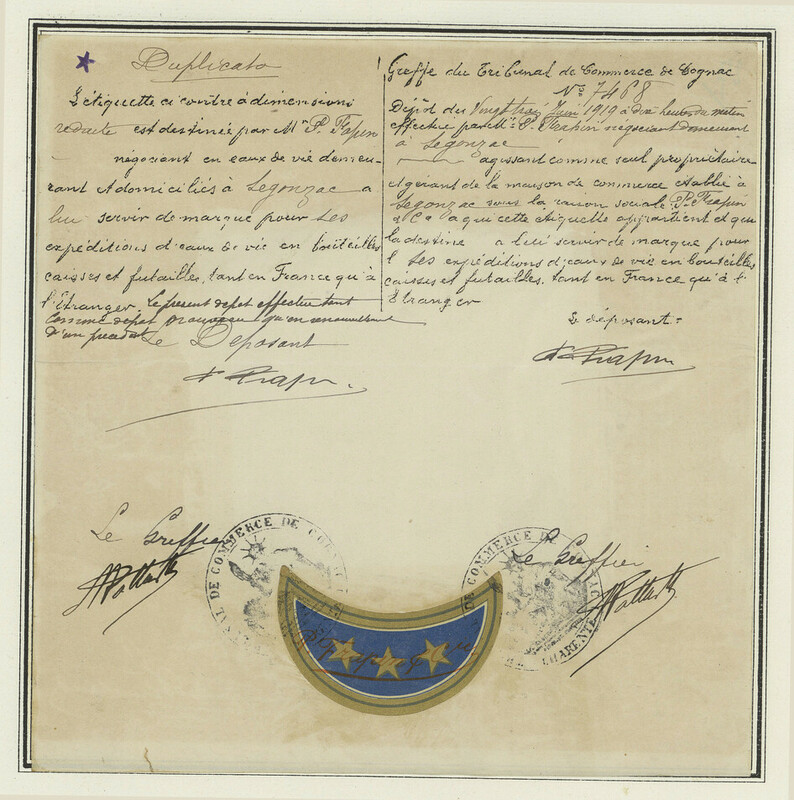 Duplicata
L'étiquette ci contre à dimensions
réduite est destinée par Mr P. Frapin
négociant en eaux de vie demeu-
rant et domiciliés à Segonzac a
lui servir de marque pour ses
expéditions d'eaux de vie en bouteilles
caisses et futailles, tant en France qu'à
l'Etranger. Le présent dépôt effectué tant
comme dépôt nouveau qu'en renouvellement
d'un précédent Le Deposant
P. Frapin
Greffe du Tribunal de Commerce de Cognac
No. 7468
Dépôt du Vingt trois Juin 1919 à dix heures du matin
effectué par Mr P. Frapin négociant demeurant
à Segonzac
agissant comme seul propriétaire
et gérant de la maison de commerce établie à
Segonzac sous la raison sociale P. Frapin
& Ca a qui cette étiquette appartient et qui
la destine a lui servir de marque pour
ses expéditions d'eaux de vie en bouteilles
caisses et futailles. tant en France qu'à l'
Etranger
Le déposant:
P. Frapin
Le Greffier
Le Greffier
NAL DE COMMERCE DE COGNAC
COMMERCE DE
CHARENTE